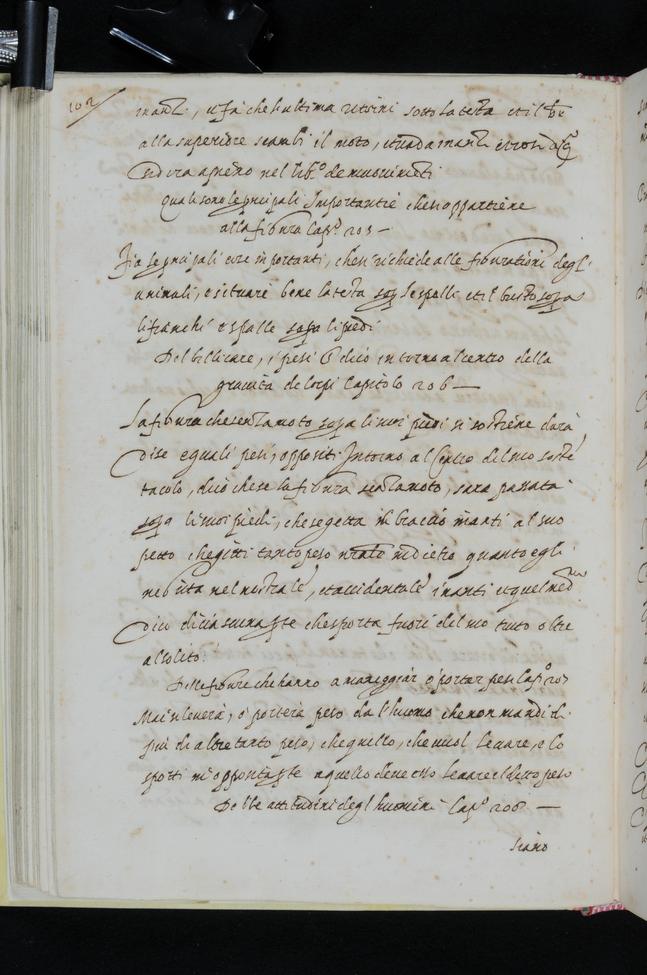 102
manti, e fa che l'ultima ruini sotto la testa et il
alla superiore scambi il moto, et uada manti et cosi
si dira apieno nel lib.º de mouimenti
Quali sono le principali Importantie che si appartiene
alla figura Cap.º 205 —
Fra le principali cose importanti, che si richiede alle figurationi degl'
animali, è situare bene la testa sopra le spalle et il busto sopra
li fianchi e spalle sopra li piedi
Del bellicare, i pesi ò dico intorno al centro della
grauita de corpi Capitolo 206 —
La figura che senza moto sopra li suoi piedi si sostiene darà
di se eguali pesi, oppositi Intorno al Centro del suo soste
tacolo, dico che se la figura senza moto, sara posata
sopra li suoi piedi, che se getta un braccio inanti al suo
petto che gitti tanto peso indietro quanto egli
ne gitta nel naturale, et accidentale inanti et quel med
dico di ciascuna parte che sporta fuori del suo tutto oltre
al solito.
Delle figure che hanno a maneggiar e portar pesi Cap.º 207
Mai si leuerà, ò porterà peso da l'huomo che non mandi di
piu di altretanto peso, che quello, che uuol leuare, e lo
sporti in opposita parte a quello doue esso leuare il detto peso
Delle attitudini degl'huomini Cap.º 208 —
Siano